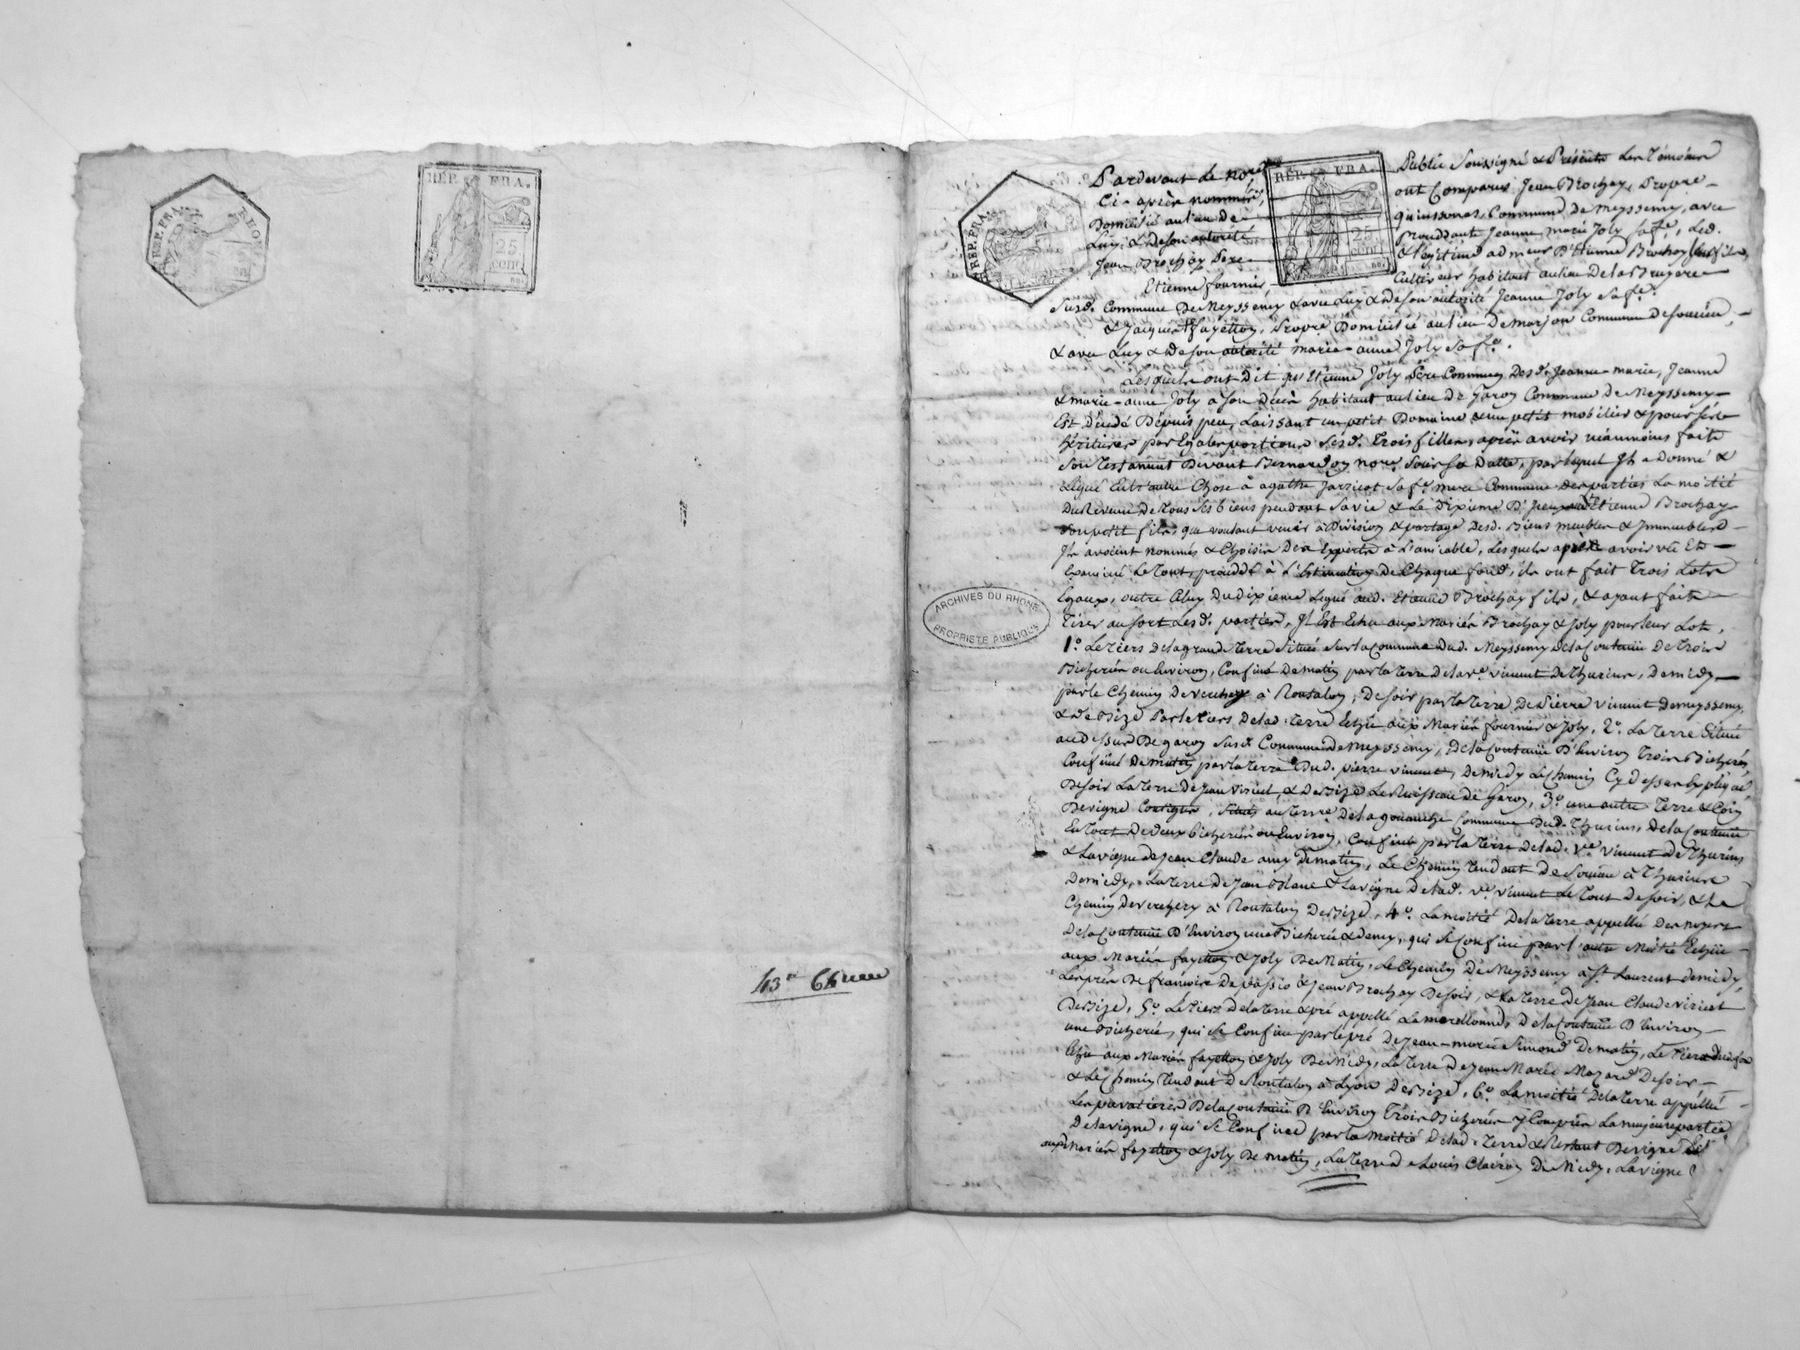 RÉP. FRA. RHONE
RÉP. FRA.
25
cent.
13e 6h
RÉP. FRA.
RÉP. FRA.
25
cent.
Pardevant le nore Public Soussigné & Présents Les témoins
Ci-après nommés, ont Comparus Jean Brochay, Propre
Domicilié au lieu de quinsonas, Commune de meyssemy, avec
Luy & de son autorité procédante Jeanne marie Joly sa fe, Led.
Jean Brochay Pere & légitime admeur D'Etienne Brochay son fils,
Etienne fournier Cultivateur habitant au lieu de la Bruyere
Susd. Commune De Meyssemy & avec Luy & de son autorité Jeanne Joly sa fe.
& Jacques fayetton, Propre Domicilié au lieu De marjon Commune de soucieu,
& avec Luy & De son autorité marie-anne Joly sa fe.
Lesquels ont Dit qu'Etienne Joly Père Commun Desd. Jeanne-marie, Jeanne
& marie-anne Joly a son Décès habitant au lieu De Jaroy Commune de Meyssemy
Est Décédé Depuis peu, Laissant un petit Domaine & un petit mobilier & pour ses
héritieres par Egales portions Sesd. trois filles, après avoir néanmoins fait
Son testament Devant Bernard nore Sous sa Datte, par lequel Il a Donné &
Légué Entr'autre Chose à agathe Jarricot sa fe mere Commune des parties La moitié
Du Revenu de tous ses biens pendant sa vie & Le Dixieme D'Iceux à Etienne Brochay
Son petit fils, que voulant venir à Division & partage Desd. Biens meubles & Immeubles
Ils avoient nommés & Choisis Des Experts à L'amiable, Lesquels après avoir vu Et
Examiné Le tout, procédé à L'Estimation De Chaque fond, ils ont fait trois Lots
Egaux, outre Celuy Du dixieme Légué aud. Etienne Brochay fils, & ayant fait
tirer au sort Lesd. parties, Il Est Echu aux Mariés Brochay & Joly pour leur Lot,
ARCHIVES DU RHONE
PROPRIETE PUBLIQUE
1° Le tiers de la grande terre Située sur la Commune Dud. Meyssemy de la Contenue De trois
Bicherées ou Environ, Confiné De matin par la terre De la ve. vincent De thurins, De midy
par le Chemin De verchery à Rontalon, De soir par la terre De Pierre vincent De meyssemy
& De Bize Par le tiers De lad. terre Echu aux Mariés fournier & Joly, 2° La terre Située
au dessus De garon Susd. Commune De meyssemy, De la Contenue D'Environ trois Bicherées
Confiné De matin par la terre Dud. pierre vincent, De midy Le chemin Cy dessus Expliqué,
De soir La terre De Jean viricel, & De Bize Le Ruisseau De Garon, 3° une autre terre & Coin
De vigne Contigus, Situés au terre De la gouanche Commune Dud. thurins, De la Contenue
En tout De deux bicherées ou Environ, Confinés par la terre De lad. ve. vincent De thurins
& La vigne de Jean Claude De matin, Le Chemin tendant De Soucieu à thurins
De midy, La terre De Jean Blanc & La vigne De lad. ve. vincent Le tout De soir, & Le
Chemin De verchery à Rontalon De Bize, 4° La moitié De la terre appellé Des noyers
De la Contenue D'Environ une Bicherée & Demy, qui se Confine par L'autre Moitié Echue
aux Mariés fayetton & Joly De Matin, Le Chemin De Meyssemy à St Laurent De midy,
Les prés De francois De & Jean Brochay De soir, & La terre De Jean Claude viricel
De Bize, 5° Le tiers De la terre & pré appellé La marellonnes De la Contenue D'Environ
une Bicherée, qui se Confine par le pré De Jean-marie Simond De matin, Le tiers
Echu aux Mariés fayetton & Joly De Midy, La terre De Jean Marie Mazard De soir
& Le Chemin tendant De Rontalon à Lyon De Bize, 6° La moitié De la terre appellée
Les De la Contenue D'Environ trois Bicherées y Compris La majeure partie
De la vigne, qui se Confinée par la Moitié De lad. terre & Restant De vigne
aux Mariés fayetton & Joly De matin, La terre De Louis Clairon De Midy, La vigne